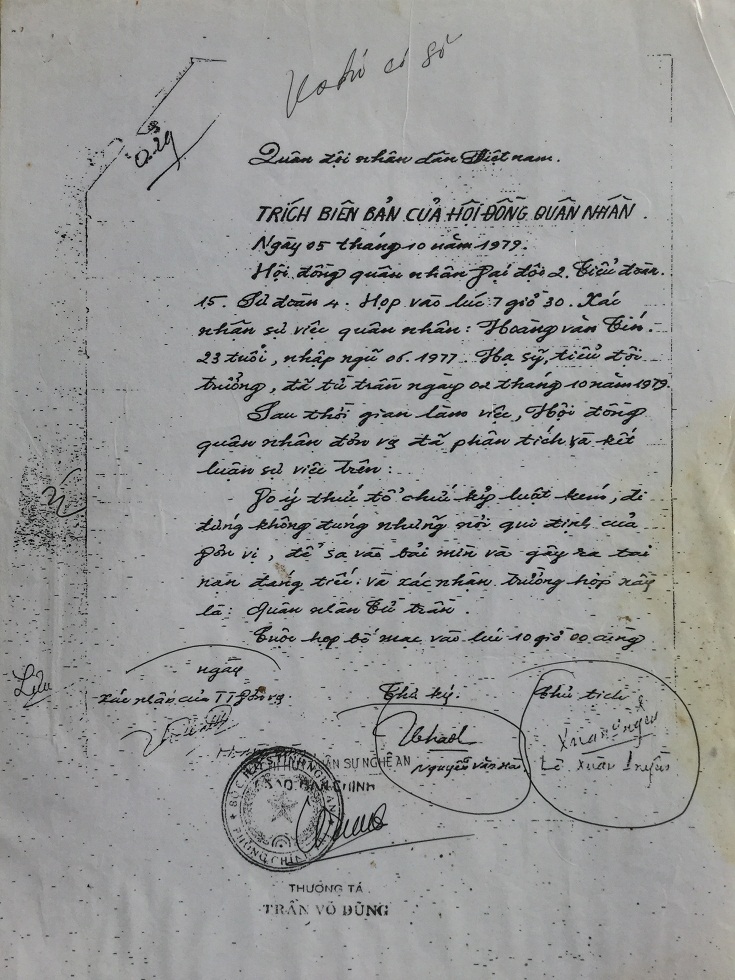 có số
029
Quân đội nhân dân Việt nam.
TRÍCH BIÊN BẢN CỦA HỘI ĐỒNG QUÂN NHÂN.
Ngày 05 tháng 10 năm 1979.
Hội đồng quân nhân Đại đội 2. Tiểu đoàn.
15. Sư đoàn 4. Họp vào lúc 7 giờ 30. Xác
nhận sự việc quân nhân: Hoàng văn Tiến.
23 tuổi, nhập ngũ 06.1977. Hạ sỹ, tiểu đội
trưởng, đã tử trần ngày 02 tháng 10 năm 1979.
Sau thời gian làm việc, Hội đồng
quân nhân đơn vị đã phân tích và kết
luận sự việc trên:
Do ý thức tổ chức kỷ luật kém, đi
đứng không đúng những nơi qui định của
Đơn vị, để sa vào bãi mìn và gây ra tai
nạn đáng tiếc. và xác nhận trường hợp này
là: Quân nhân Tử trần.
Cuộc họp bế mạc vào lúc 10 giờ 00 cùng
ngày
Lưu
Xác nhận của TT Đơn vị.
Thư ký.
Chủ tịch
Nguyễn văn
Lê Xuân
SỰ NGHỆ AN
SAO BẢN CHÍNH
THƯỢNG TÁ
TRẦN VÕ DŨNG